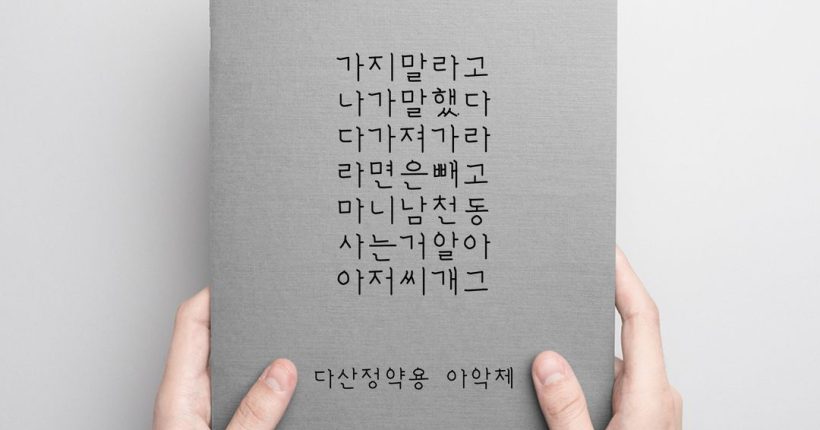 가지말라고
나가말했다
다가져가라
라면은빼고
마니남천동
사는거알아
아저씨개그
다산정약용 아악체